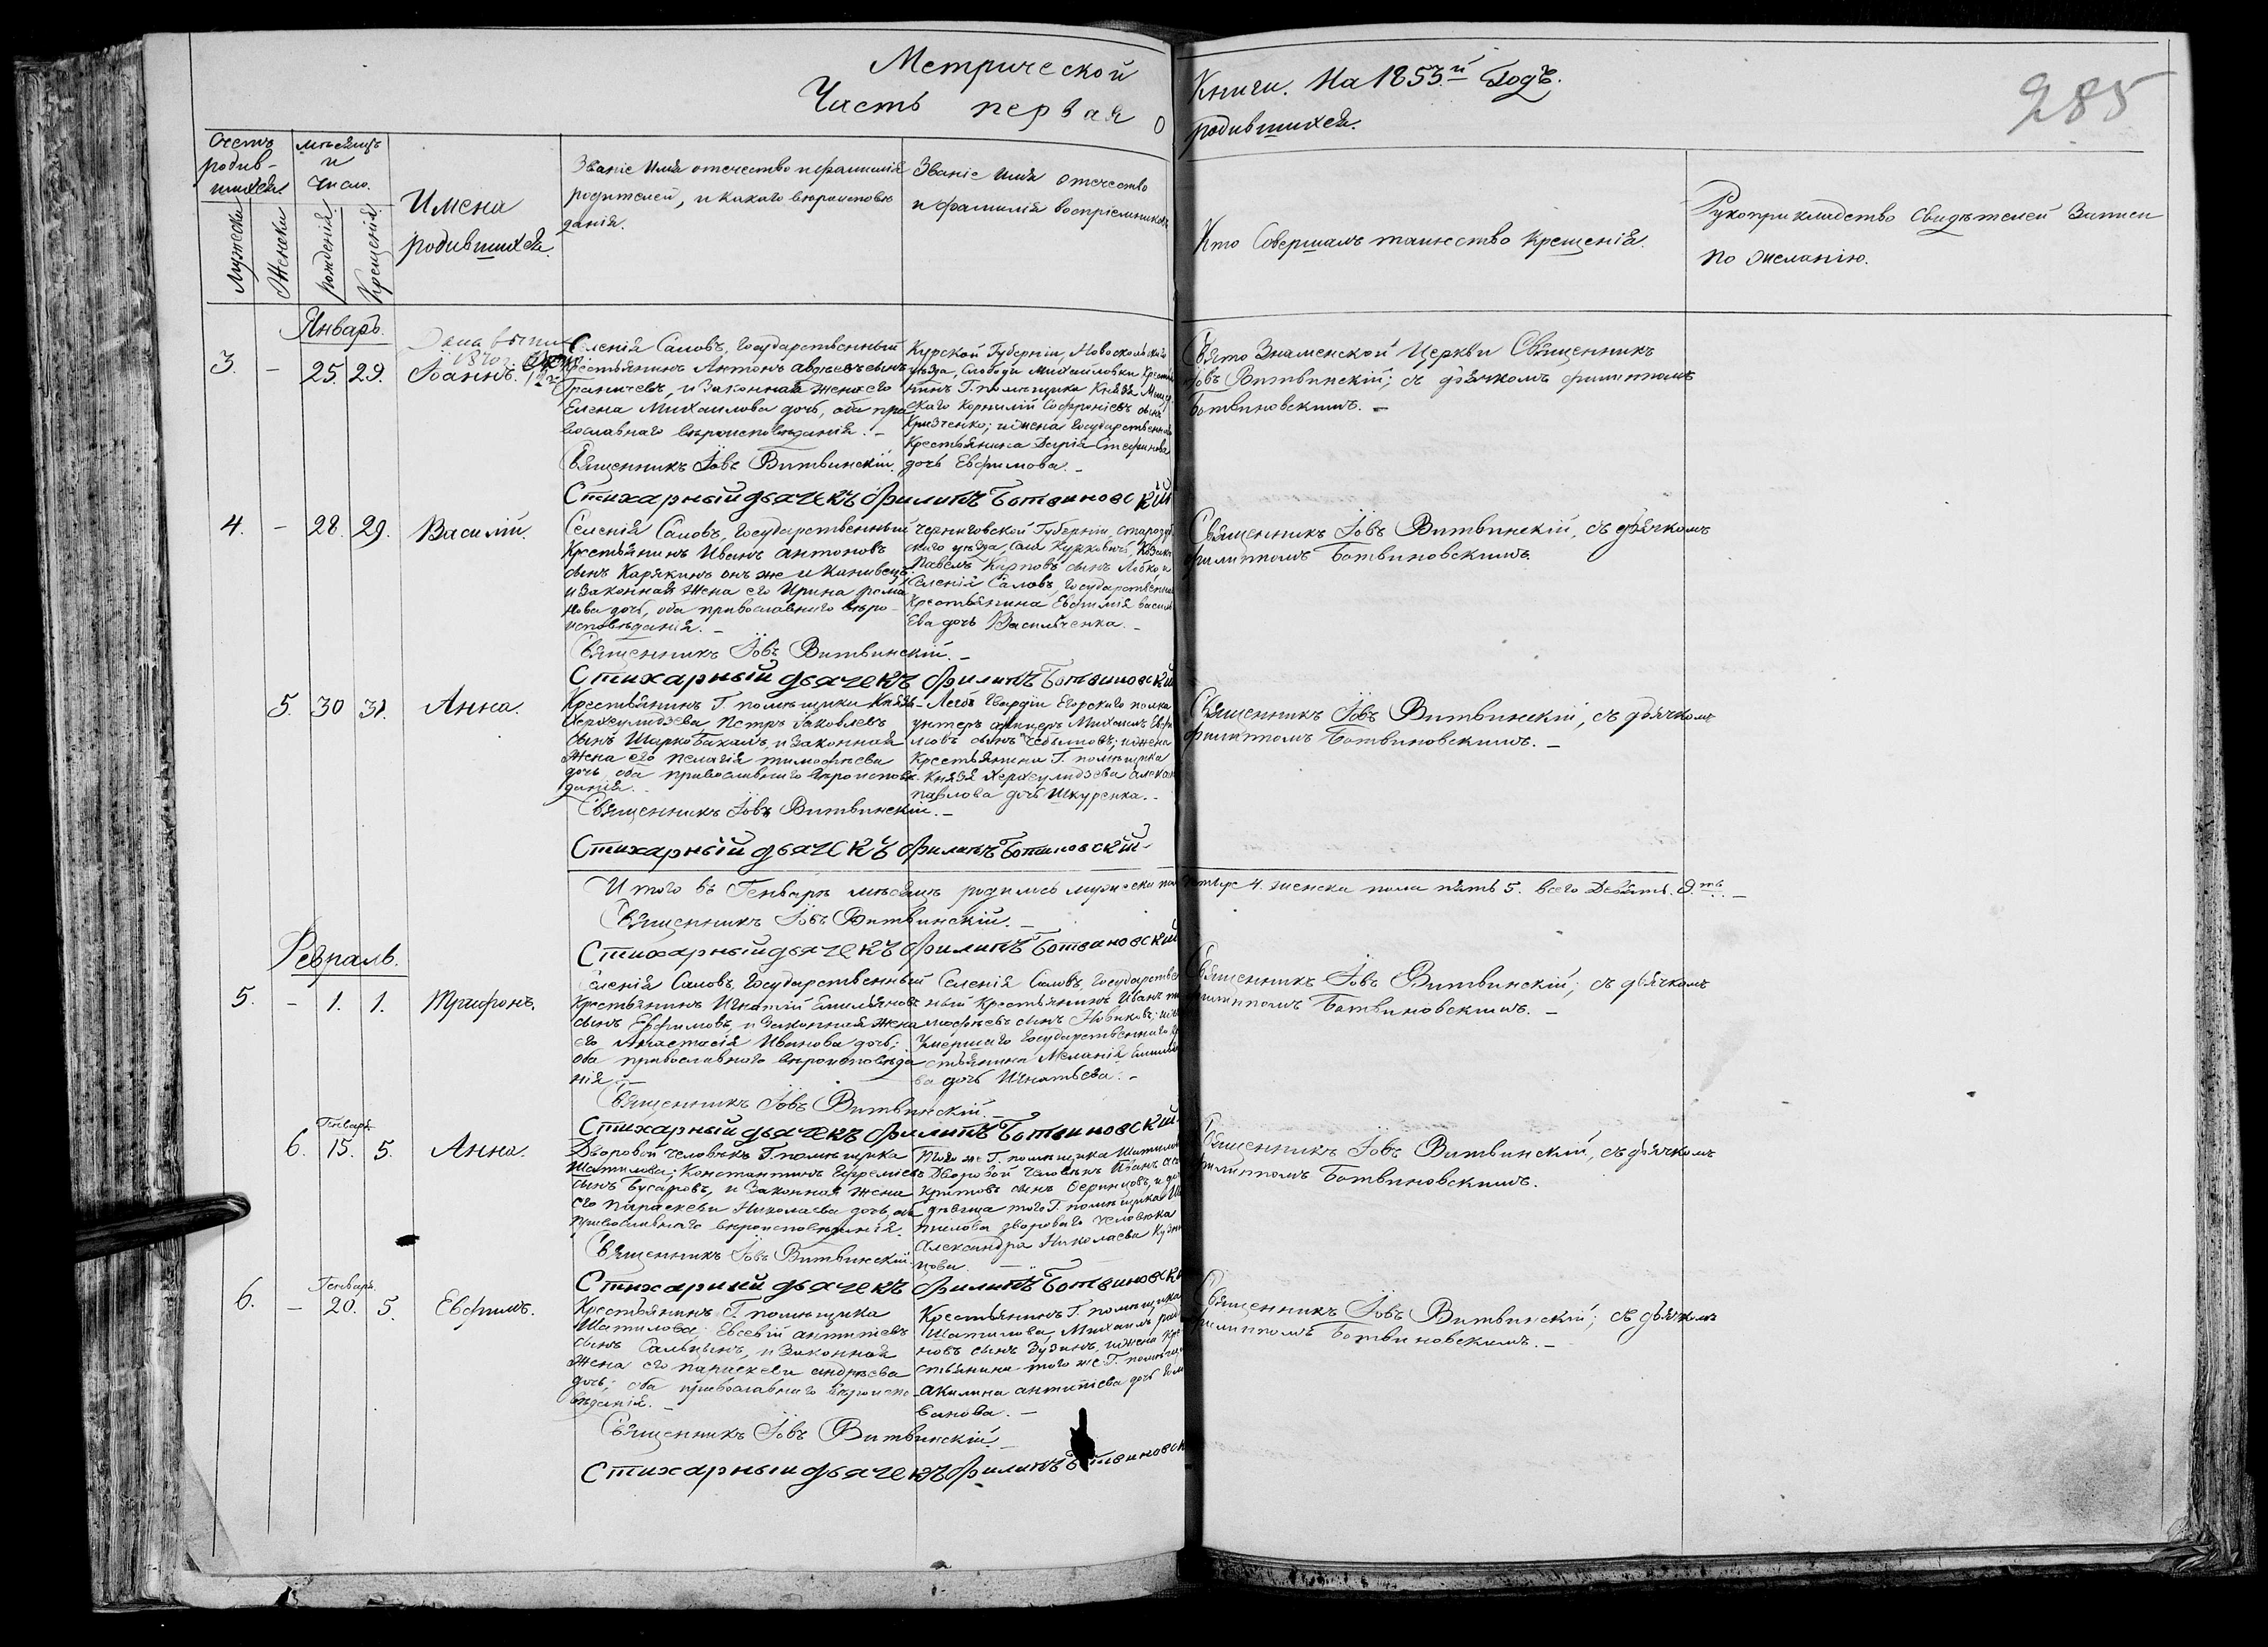 Метрической
Часть первая о
Книги. На 1853.й Годъ.
родившихся.
285
Счетъ родив-шихся.
мѣсяцъ и число.
Мужеска
Женска
рожденія
Крещенія
Имена
родившихся.
Званіе имя отечество и фамилія
родителей, и какого вѣроисповѣ
данія.
Званіе имя отечество
и фамилія воспріемниковъ
Кто Совершалъ таинство крещенія.
Рукоприкладство свидѣтелей записи
по желанію.
Январь.
3. - 25. 29. Іоаннъ.
Селенія Саловъ, Государственный
Крестьянинъ Антонъ Авдѣевъ сынъ
Граничевъ, и законная жена его
Елена Михаилова дочь, оба пра
вославнаго вѣроисповѣданія. -
Священникъ Іовъ Витвинскій.
Стихарный дьячекъ Филипъ Ботвиновскій
Курской Губерніи, Новоскольскаго
уѣзда, Слободы Михаиловки Крестья
нинъ Г. помѣщика Князя
Корнилій Софроніевъ сынъ
Кривченко; и жена Государственнаго
Крестьянина Дарія Стефанова
дочь Евфимова. -
Свято Знаменской Церкви Священникъ
Іовъ Витвинскій; съ дьячкомъ Филиппомъ
Ботвиновскимъ. -
4. - 28. 29. Василій.
Селенія Саловъ, Государственный
Крестьянинъ Иванъ Антоновъ
сынъ Карякинъ онъ же и Каневецъ
и законная жена его Ирина Рома
нова дочь, оба православнаго вѣро-
исповѣданія. -
Священникъ Іовъ Витвинскій. -
Стихарный дьячекъ Филипъ Ботвиновскій
Черниговской Губерніи, Стародуб
скаго уѣзда, села Курковичь, Козакъ
Павелъ Карповъ сынъ Лобко и
Селенія Саловъ, Государственна
Крестьянина Евфимія Василь
ева дочь Васильченка. -
Священникъ Іовъ Витвинскій, съ дьячкомъ
Филиппомъ Ботвиновскимъ.
5. 30 31. Анна.
Крестьянинъ Г. помѣщика Князя
Херхеулидзева Петръ Іаковлевъ
сынъ Шарко Бакаль, и законная
жена его Пелагія Тимофѣева
дочь, оба православнаго вѣроисповѣ
данія. -
Священникъ Іовъ Витвинскій. -
Стихарный дьячекъ Филипъ Ботвиновскій
Лейбъ Гвардіи Егорскаго полка
унтеръ офицеръ Михаилъ Евфи
мовъ сынъ и жена
Крестьянина Г. помѣщика
Князя Херхеулидзева
Павлова дочь Шкуренка. -
Священникъ Іовъ Витвинскій, съ дьячкомъ
Филиппомъ Ботвиновскимъ. -
Итого въ Генварѣ мѣсяцѣ родилось мужеска пола четыре 4. женска пола пять 5. всего Девять. 9.ть. -
Священникъ Іовъ Витвинскій. -
Стихарный дьячекъ Филипъ Ботвиновскій
Февраль.
5. - 1. 1. Трифонъ.
Селенія Саловъ, Государственный
Крестьянинъ Игнатій Емельяновъ
сынъ Евфимовъ, и законная жена
его Анастасія Иванова дочь;
оба православнаго вѣроисповѣда
нія. -
Священникъ Іовъ Витвинскій. -
Стихарный дьячекъ Филипъ Ботвиновскій
Селенія Саловъ, Государствен
ный Крестьянинъ Иванъ Ти
мофѣевъ сынъ Новиковъ;
умершаго Государственнаго Кре
стьянина Меланія
ва дочь Игнатьева. -
Священникъ Іовъ Витвинскій; съ дьячкомъ
Филиппомъ Ботвиновскимъ. -
6. Генварь 15. 5. Анна.
Дворовой человѣкъ Г. помѣщика
Шатилова; Константинъ Іереміевъ
сынъ Бусаровъ, и законная жена
его Параскеви Николаева дочь, оба
православнаго вѣроисповѣданія.
Священникъ Іовъ Витвинскій.
Стихарный дьячекъ Филипъ Ботвиновскій
Того же Г. помѣщика Шатилова
Дворовой человѣкъ Иванъ
сынъ
дѣвица того Г. помѣщика Ша
тилова двороваго человѣка
Александра Николаева Кузне
цова. -
Священникъ Іовъ Витвинскій, съ дьячкомъ
Филиппомъ Ботвиновскимъ.
6. - Генварь 20. 5. Евфимъ.
Крестьянинъ Г. помѣщика
Шатилова; Евсевій Антипіевъ
сынъ Сальцынъ, и законная
жена его Параскеви Андреева
дочь; оба православнаго вѣроиспо
вѣданія. -
Священникъ Іовъ Витвинскій. -
Стихарный дьячекъ Филипъ Ботвиновск
Крестьянинъ Г. помѣщика
Шатилова, Михаилъ Роді
новъ сынъ Зузинъ, и жена кре
стьянина того же Г. помѣщи
Акилина Антипіева дочь
ванова. -
Священникъ Іовъ Витвинскій; съ дьячкомъ
Филиппомъ Ботвиновскимъ. -